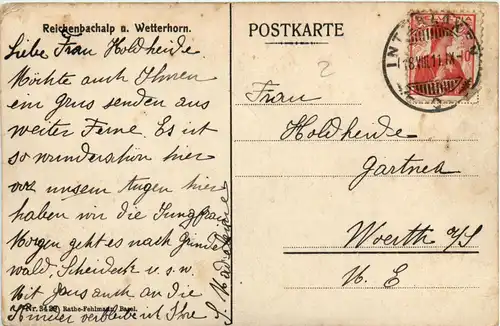 Reichenbachalp u. Wetterhorn.
Liebe Frau Holdheide
Möchte auch Ihnen
ein grus senden aus
weiter Ferne. Es ist
so wunderschön hier
vor unsern Augen hier
haben wir die Jungfrau
Morgen geht es nach Grindel
wald, Scheideck u.s.w.
Mit grus auch an die
Kinder verbleibe ich Ihre
Rathe-Fehlmann, Basel.
POSTKARTE
2
INTERLAKEN
18.VIII.11.IX-10
HELVETIA
Frau
Holdheide
Gärtner
Woerth a/S
U. E